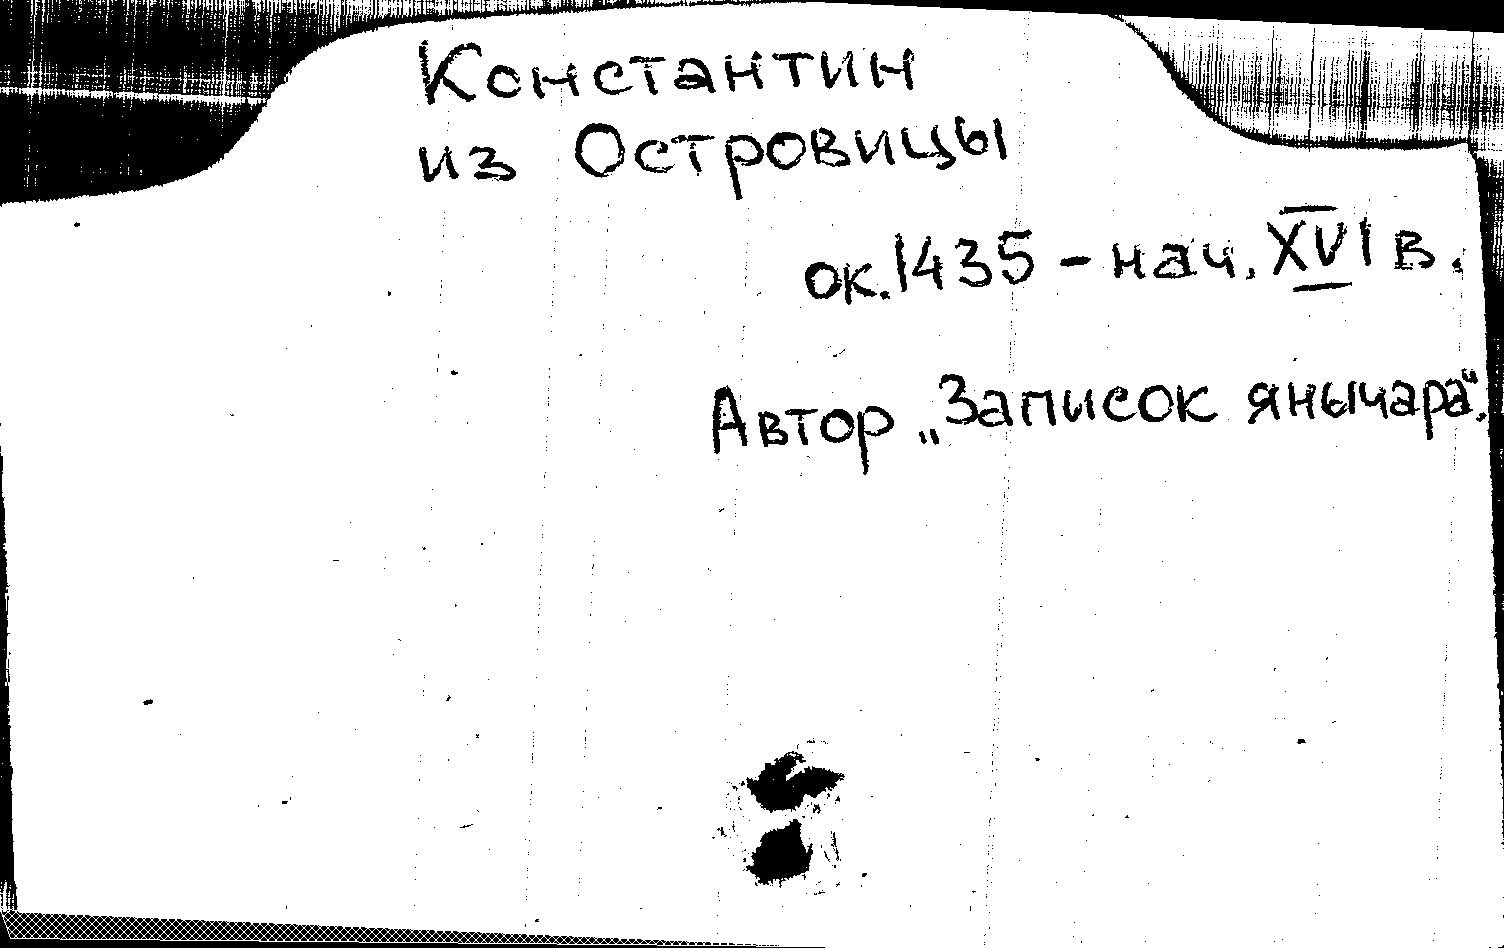 Константин
из Островицы
ок. 1435 - нач. XVI в.
Автор „Записок янычара".